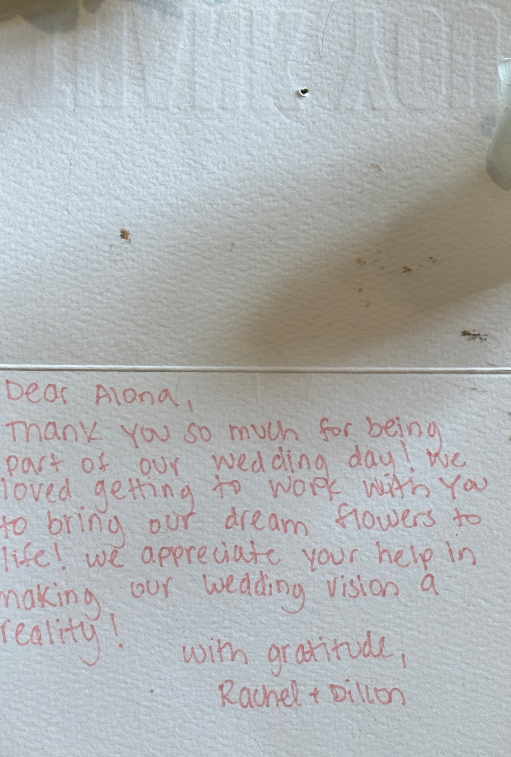 THANK YOU
Dear Alona,
Thank you so much for being
part of our wedding day! We
loved getting to work with you
to bring our dream flowers to
life! We appreciate your help in
making our wedding vision a
reality!
With gratitude,
Rachel + Dillon